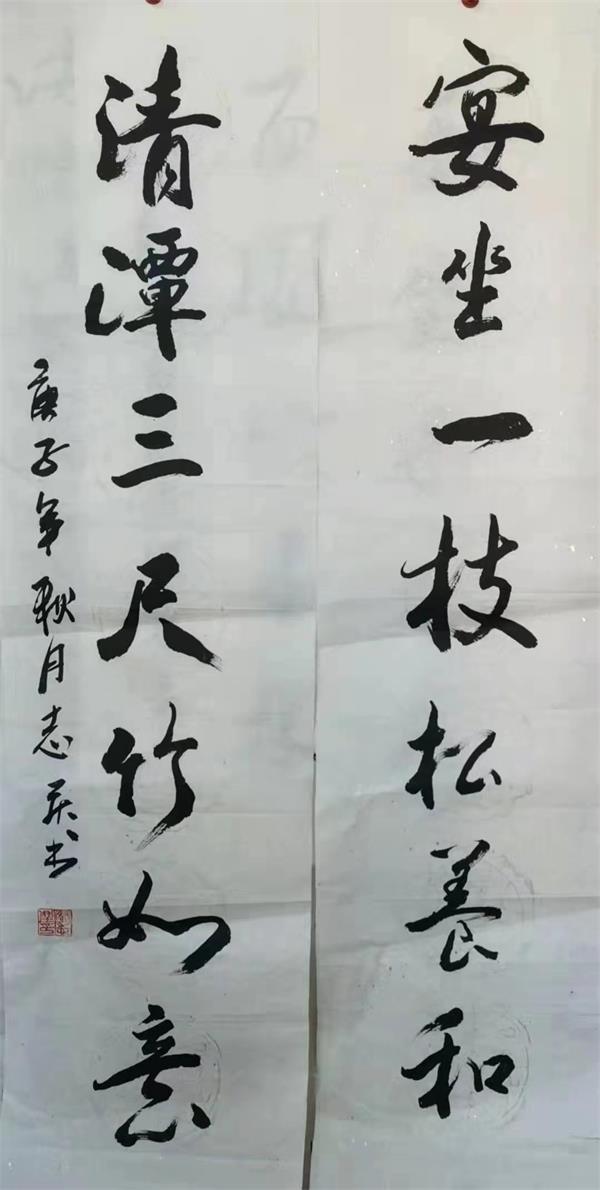 宴坐一枝松养和
清潭三尺竹如意
庚子年秋月志